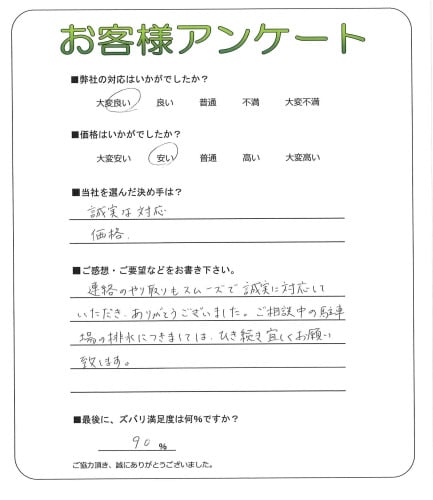 お客様アンケート
■弊社の対応はいかがでしたか？
大変良い 良い 普通 不満 大変不満
■価格はいかがでしたか？
大変安い 安い 普通 高い 大変高い
■当社を選んだ決め手は？
誠実な対応
価格.
■ご感想・ご要望などをお書き下さい。
連絡のやり取りもスムーズで誠実に対応して
いただき、ありがとうございました。ご相談中の駐車
場の排水につきましては、ひき続き宜しくお願い
致します。
■最後に、ズバリ満足度は何%ですか？
90 %
ご協力頂き、誠にありがとうございました。